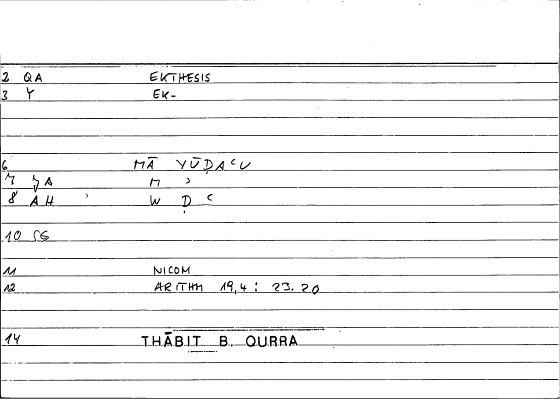 2 QA EKTHESIS
3 Y EK-
6 MĀ YŪḌAʿU
7 ȜA M ʾ
8 AH ʾ W Ḍ ʿ
10 SG
11 NICOM
12 ARITHM 19,4 : 23.20
14 THĀBIT B. QURRA